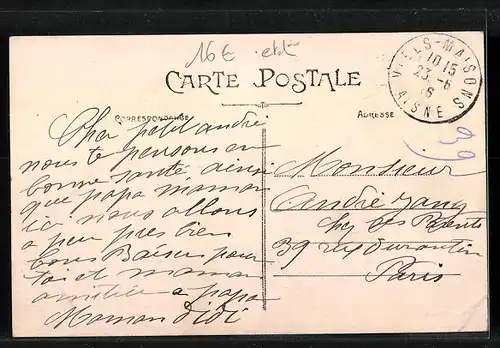 16€
CARTE POSTALE
CORRESPONDANCE
ADRESSE
VIELS-MAISONS
10 15
23 -6
16
AISNE
Cher petit andré
nous te pensons en
bonne santé, ainsi
que papa maman
ici nous allons
a peu pres bien
bons Baisers pour
toi et maman
amitiée a papa
Maman Didi
Monsieur
André
chez ses Parents
39 rue Durantin
Paris